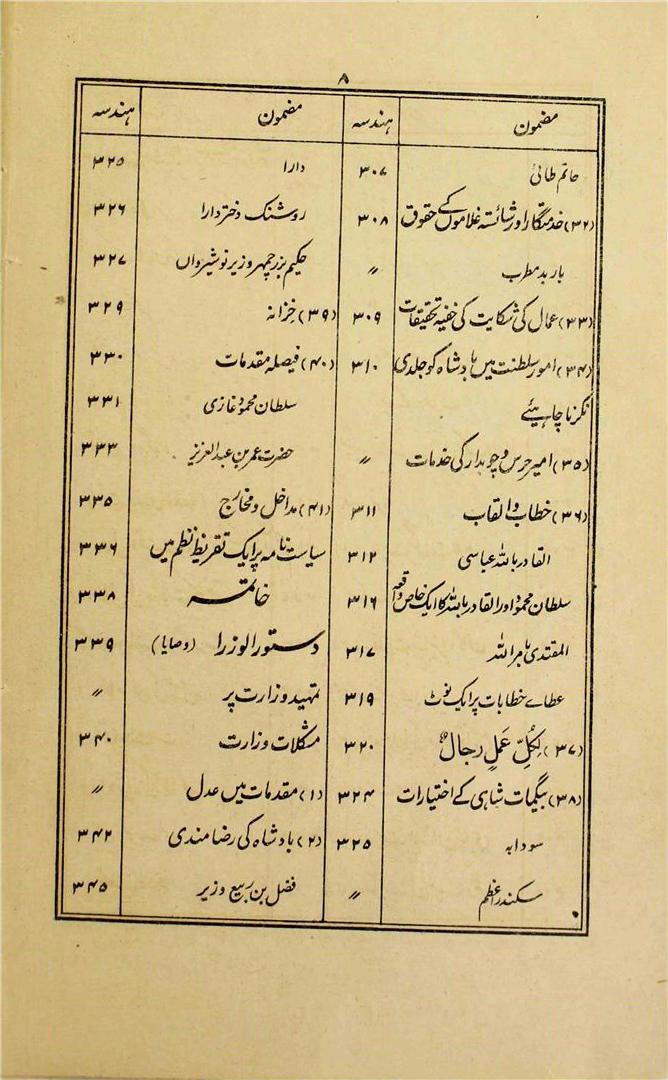 ۸
مضمون ہندسہ
حاتم طائی ۳۰۷
(۳۲) خدمتگار اور شائستہ غلاموں کے حقوق ۳۰۸
باربد مطرب 〃
(۳۳) عمال کی شکایت کی خفیہ تحقیقات ۳۰۹
(۳۴) امور سلطنت میں بادشاہ کو جلدی ۳۱۰
نکرنا چاہیئے
(۳۵) امیر حرس و چوبدار کی خدمات 〃
(۳۶) خطاب و القاب ۳۱۱
القادر باللہ عباسی ۳۱۲
سلطان محمود اور القادر باللہ کا ایک خاص واقعہ ۳۱۶
المقتدی بامر اللہ ۳۱۷
عطاے خطابات پر ایک نوٹ ۳۱۹
(۳۷) لِکُلِّ عَمَلٍ رِجالٌ ۳۲۰
(۳۸) بیگمات شاہی کے اختیارات ۳۲۴
سودابہ ۳۲۵
سکندر اعظم 〃
مضمون ہندسہ
دارا ۳۲۵
روشنک دختر دارا ۳۲۶
حکیم بزرچمہر وزیر نوشیرواں ۳۲۷
(۳۹) خزانہ ۳۲۹
(۴۰) فیصلہ مقدمات ۳۳۰
سلطان محمود غازی ۳۳۱
حضرت عمر بن عبدالعزیز ۳۳۳
(۴۱) مداخل و مخارج ۳۳۵
سیاست نامہ پر ایک تقریظ نظم میں ۳۳۶
خاتمہ ۳۳۸
دستور الوزرا (وصایا) ۳۳۹
تمہید وزارت پر 〃
مشکلات وزارت ۳۴۰
(۱) مقدمات میں عدل 〃
(۲) بادشاہ کی رضامندی ۳۴۲
فضل بن ربیع وزیر ۳۴۵